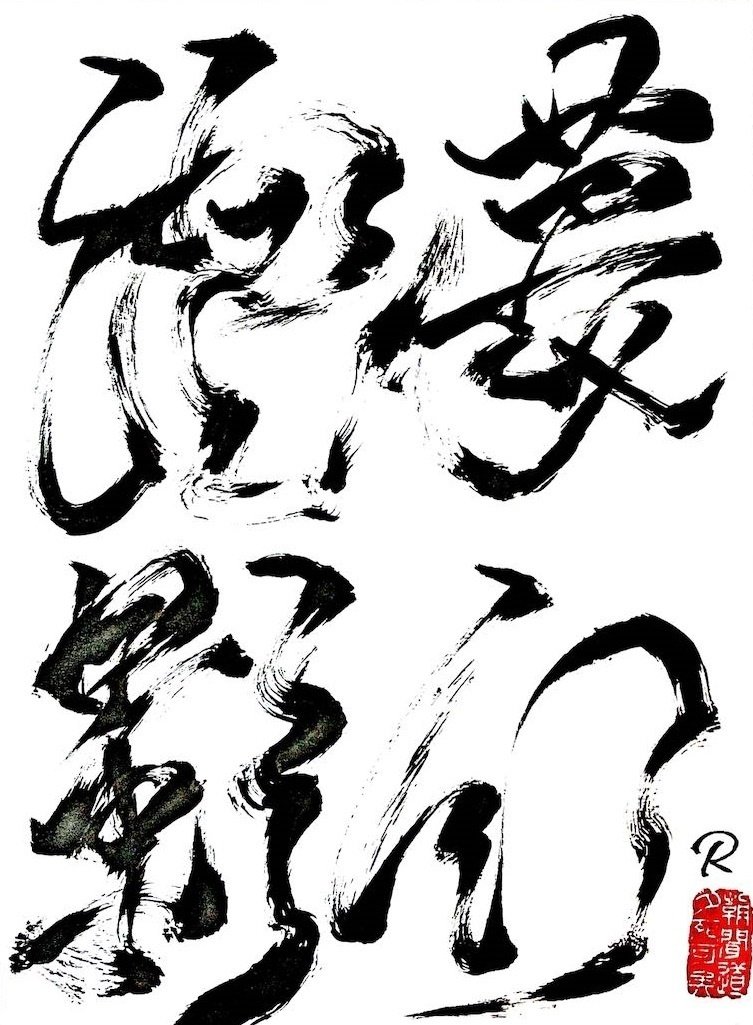 夢幻
泡影
R
朝聞道
夕死可矣